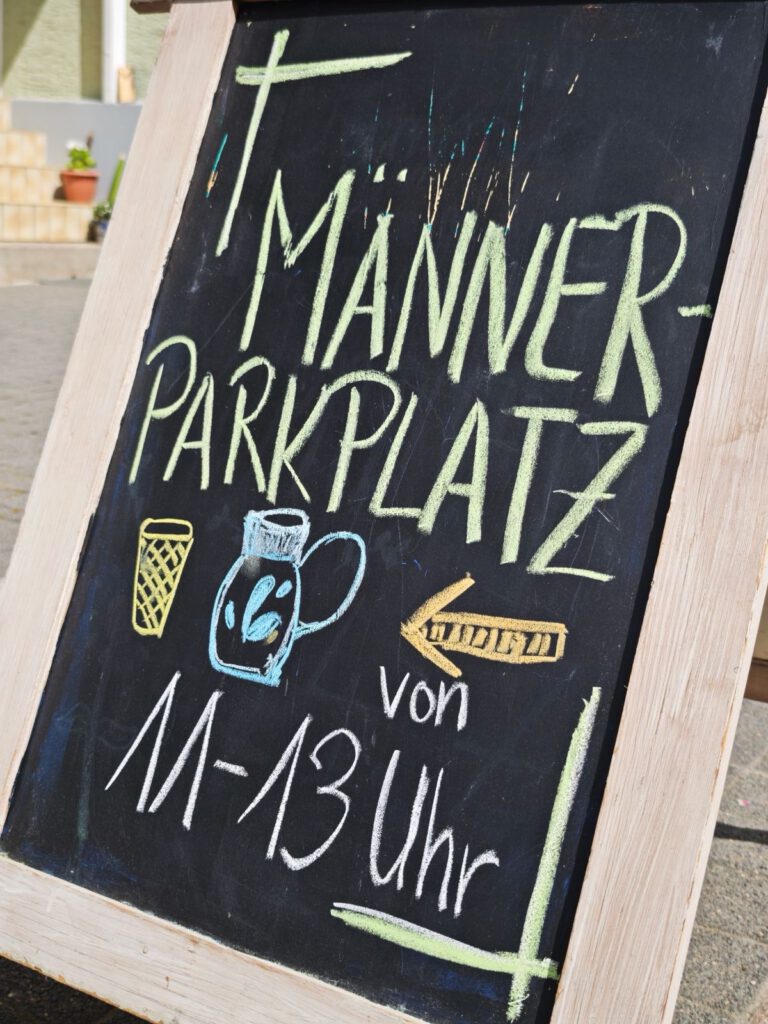 MÄNNER-
PARKPLATZ
von
11-13 Uhr